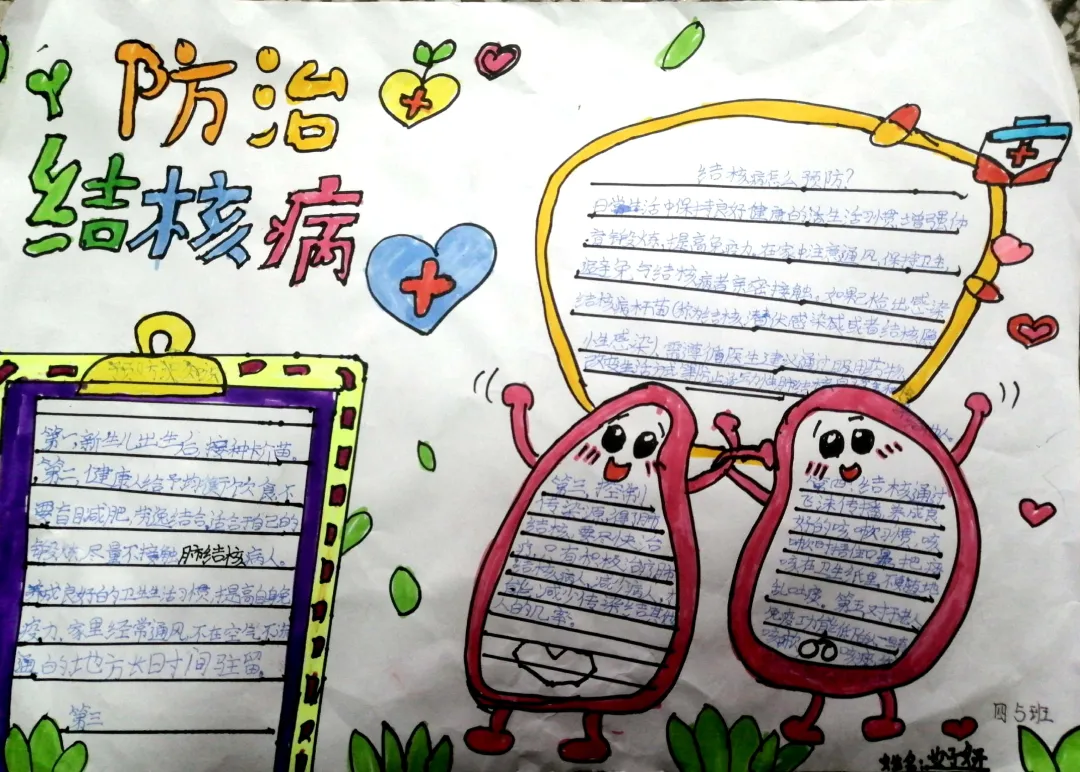 防治
结核病
结核病怎么预防?
日常生活中保持良好健康的的生活习惯,增强体
育锻炼,提高免疫力,在家中注意通风,保持卫生,
与结核病者亲密接触。如果已检出感染
结核病杆菌(称为结核潜伏感染或者结核隐
感染)需遵循医生建议通过服用药物
改变生活方式
第一,新生儿出生后,接种卡苗。
第二,健康人给予均衡饮食不
要盲目减肥,劳逸结合,适合于自己的
锻炼,尽量不接触肺结核病人。
养成良好的卫生生活习惯,提高自身免
疫力,家里经常通风,不在空气不流
通的地方长时间驻留。
第三
第三,控制
传染源,得了肺
结核,要尽快治
疗,只有加极治疗肺
结核病人,减少病人
减少传染给其他
人的几率。
第四,结核通过
飞沫传播,养成良
好的咳嗽习惯,咳
嗽时捂住口鼻,把痰
咳在卫生纸里,不要随地
乱吐痰。第五,对于老人
免疫功能低下
咳嗽
四5班
姓名: